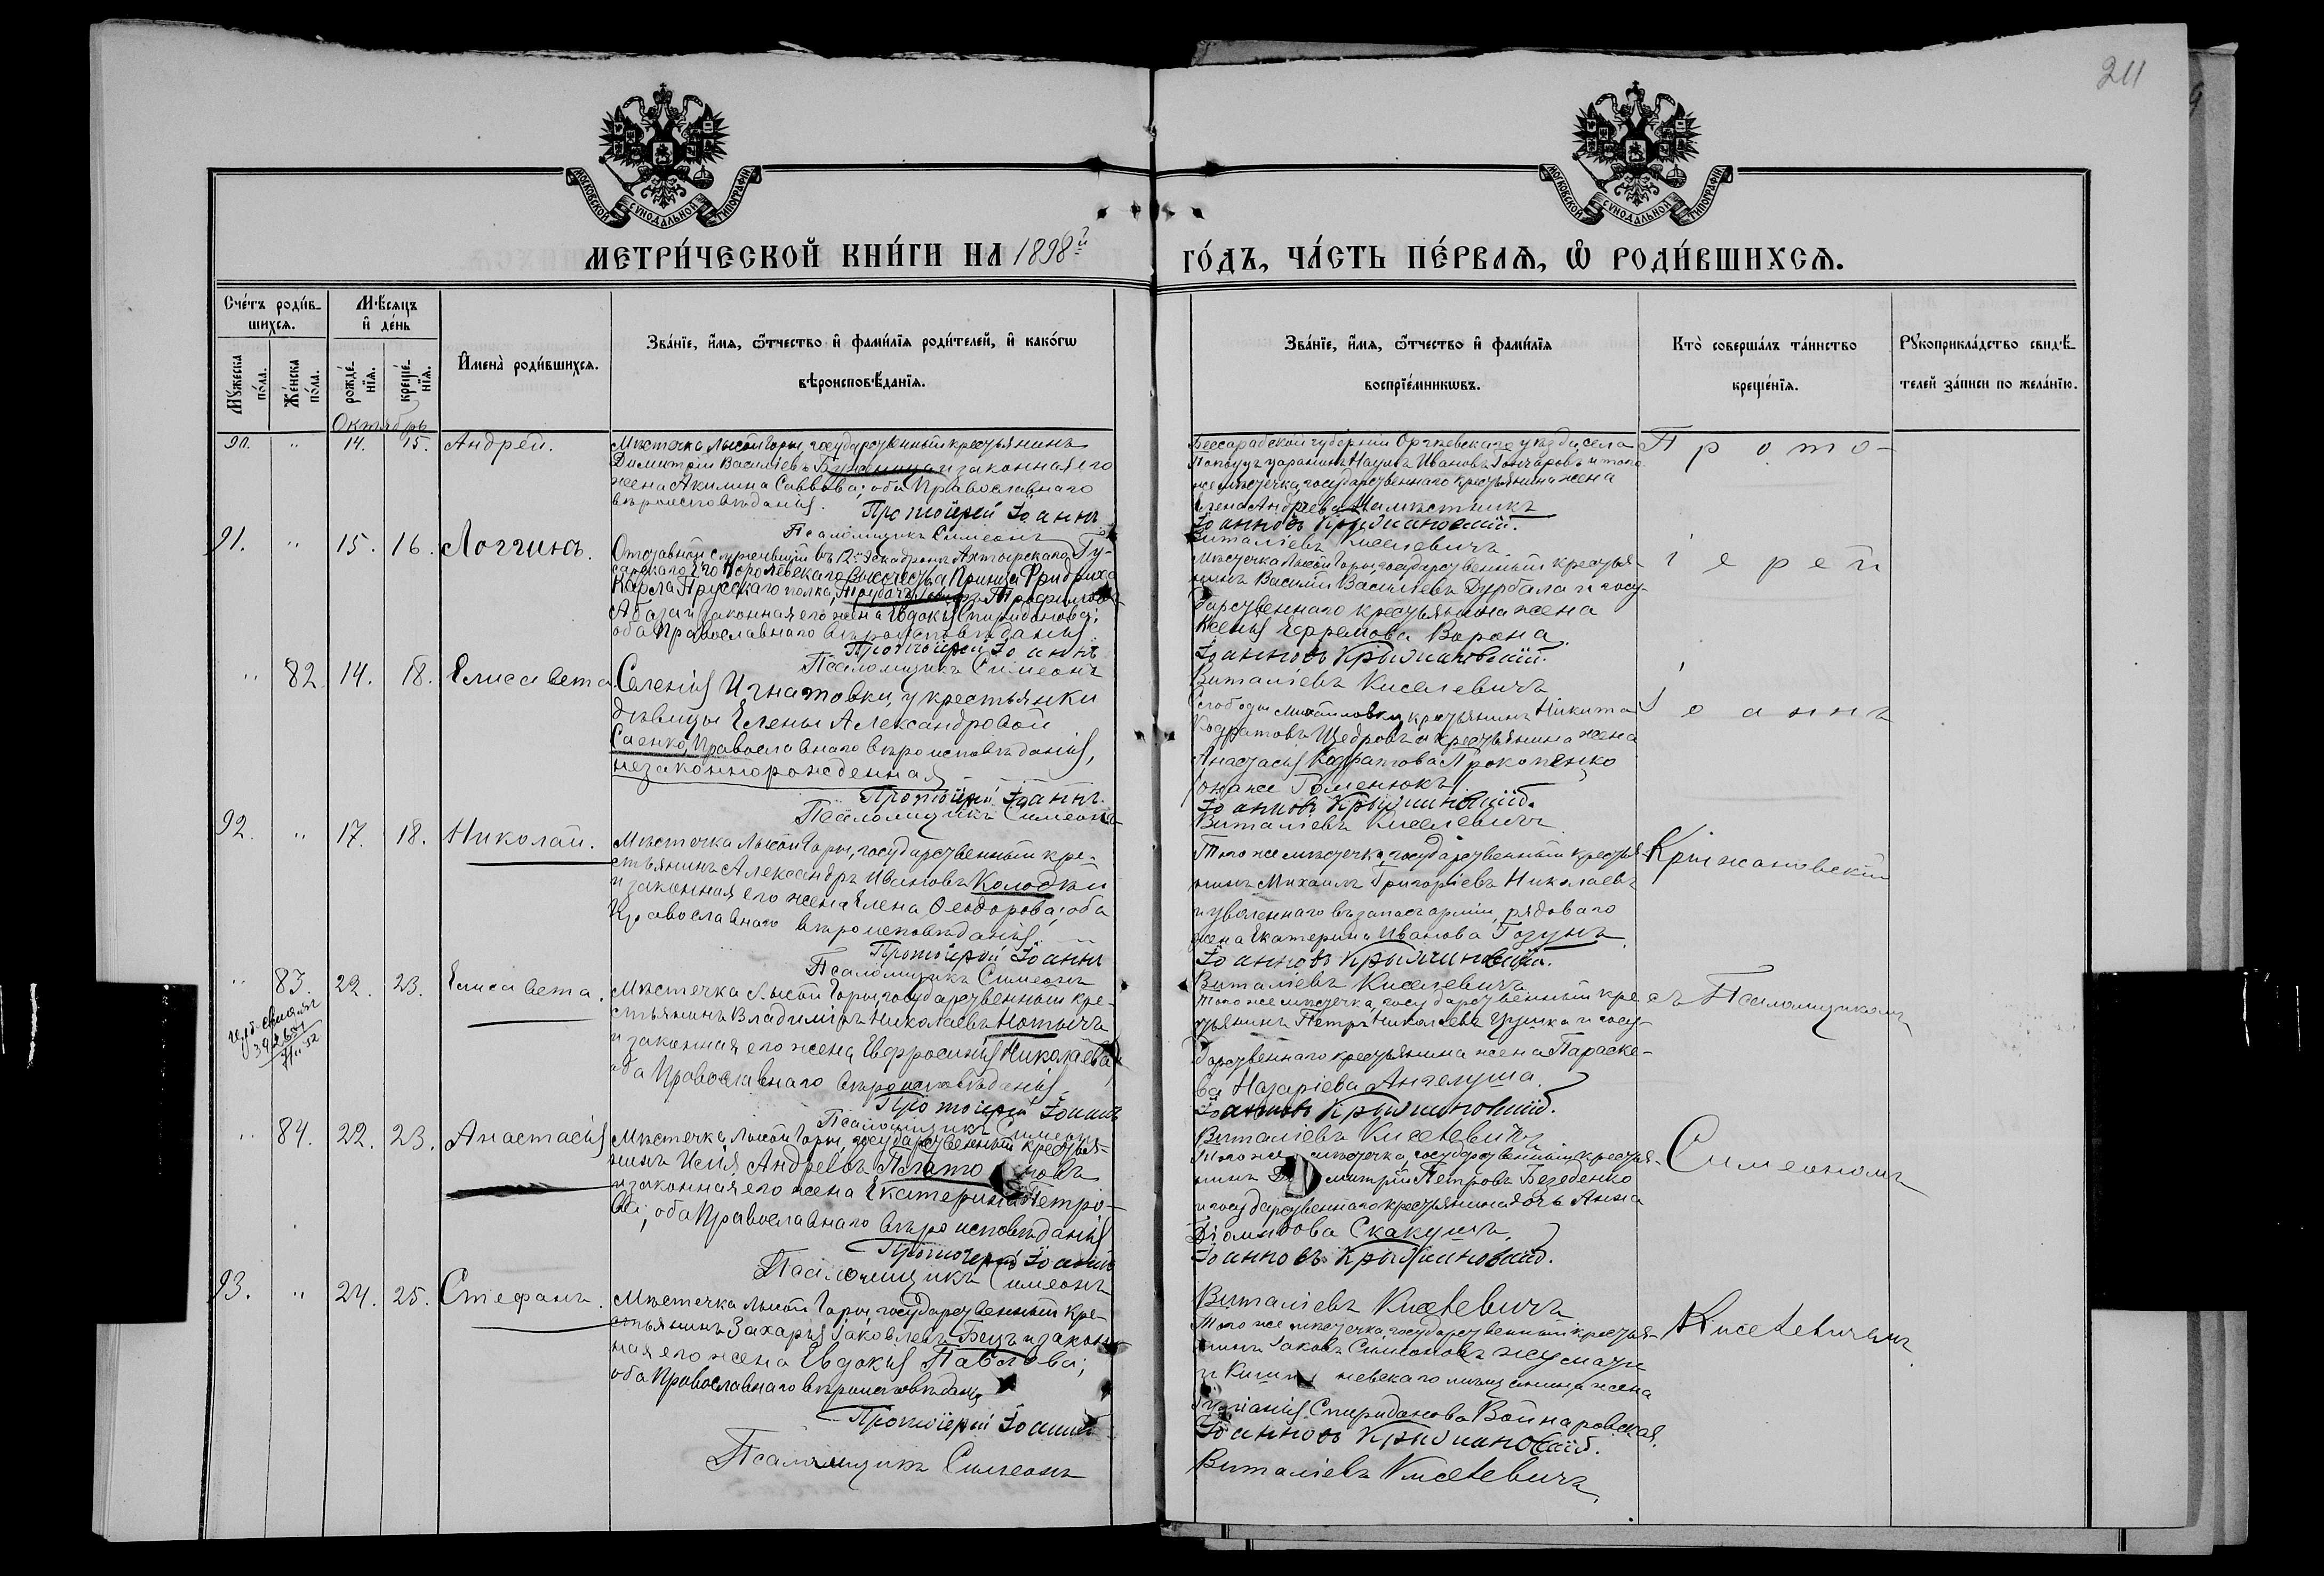 211
МОСКОВСКОЙ СУНОДАЛЬНОЙ ТИПОГРАФІИ
МОСКОВСКОЙ СУНОДАЛЬНОЙ ТИПОГРАФІИ
МЕТРИ́ЧЕСКОЙ КНИ́ГИ НА 1898й
ГО́ДЪ, ЧА́СТЬ ПЕ́РВАѦ, Ѡ РОДИ́ВШИХСѦ.
Сче́тъ роди́в-
шихсѧ.
Мꙋжеска по́ла.
Же́нска по́ла.
Мѣ́сѧцъ
и҆ де́нь
рожде́-
нїѧ.
креще́-
нїѧ.
И҆мена̀ роди́вшихсѧ.
Зва́нїе, и҆́мѧ, ѻ҆́тчество и҆ фами́лїѧ роди́телей, и҆ како́гѡ
вѣроисповѣ́данїѧ.
Зва́нїе, и҆́мѧ, ѻ҆́тчество и҆ фами́лїѧ
воспрїе́мникѡвъ.
Кто̀ соверша́лъ та́инство
креще́нїѧ.
Рꙋкоприкла́дство свидѣ́-
телей за́писи по жела́нїю.
Октябрь
90. " 14. 15. Андрей.
Мѣстечка Лысой Горы, государственный крестьянинъ
Димитрій Васильевъ и законная его
жена Акилина Саввова; оба Православнаго
вѣроисповѣданія.
Протоіерей Іоаннъ
Псаломщикъ Симеонъ
Бессарабской губерніи Оргѣевскаго уѣзда села
царанинъ Наумъ Ивановъ Гончаровъ и того
же мѣстечка, государственнаго крестьянина жена
Елена Андреева
Іоанновъ Крыжановскій.
Виталіевъ Киселевичъ
Прото-
91. " 15. 16. Логгинъ.
Отставной служившій въ 12мъ Эскадронѣ Ахтырскаго Гу-
сарскаго Его Королевскаго Высочества Принца Фридриха
Карла Прусскаго полка,
и законная его жена Евдокія Спиридонова;
оба Православнаго вѣроисповѣданія.
Протоіерей Іоаннъ
Псаломщикъ Симеонъ
Мѣстечка Лысой Горы, государственный крестья-
нинъ Василій Васильевъ Дурбала и госу-
дарственнаго крестьянина жена
Ксенія Ефремова Ворона.
Іоанновъ Крыжановскій.
Виталіевъ Киселевичъ
іерей
" 82 14. 18. Елисавета.
Селенія Игнатовки, у крестьянки
дѣвицы Елены Александровой
Саенко, Православнаго вѣроисповѣданія,
незаконнорожденная
Протоіерей Іоаннъ
Псаломщикъ Симеонъ
Слободы Михайловки, крестьянинъ Никита
Кодратовъ Щедровъ и крестьянина жена
Анастасія Кодратова Прокопенко
онаже Гоменюкъ.
Іоанновъ Крыжановскій.
Виталіевъ Киселевичъ
Іоаннъ
92. " 17. 18. Николай.
Мѣстечка Лысой Горы, государственный кре-
стьянинъ Александръ Ивановъ
и законная его жена Елена Ѳеодорова; оба
Православнаго вѣроисповѣданія.
Протоіерей Іоаннъ
Псаломщикъ Симеонъ
Того же мѣстечка, государственный крестья-
нинъ Михаилъ Григоріевъ Николаевъ
и уволеннаго въ запасъ арміи, рядоваго
жена Екатерина Иванова
Іоанновъ Крыжановскій.
Виталіевъ Киселевичъ
Крыжановскій
" 83. 22. 23. Елисавета.
Мѣстечка Лысой Горы, государственный кре-
стьянинъ Владиміръ Николаевъ
и законная его жена Евфросинія Николаева;
оба Православнаго вѣроисповѣданія.
Протоіерей Іоаннъ
Псаломщикъ Симеонъ
Того же мѣстечка, государственный кре-
стьянинъ Петръ Николаевъ и госу-
дарственнаго крестьянина жена Параске-
ва Назаріева Ангелуша.
Іоанновъ Крыжановскій.
Виталіевъ Киселевичъ
съ Псаломщикомъ
" 84. 22. 23. Анастасія
Мѣстечка Лысой Горы, государственный крестья-
нинъ Исаія Андреевъ Плато новъ
и законная его жена Екатерина Петро-
ва; оба Православнаго вѣроисповѣданія
Протоіерей Іоаннъ
Псаломщикъ Симеонъ
Того же мѣстечка, государственный крестья-
нинъ Димитрій Петровъ Безеденко
и государственнаго крестьянина дочь Анна
Скакунъ.
Іоанновъ Крыжановскій.
Виталіевъ Киселевичъ
Симеономъ
93. " 24. 25. Стефанъ.
Мѣстечка Лысой Горы, государственный кре-
стьянинъ Захарія Іаковлевъ Бецъ и закон-
ная его жена Евдокія Павлова;
оба Православнаго вѣроисповѣданія
Протоіерей Іоаннъ
Псаломщикъ Симеонъ
Того же мѣстечка, государственный крестья-
нинъ Іаковъ Симеоновъ
и Кишиневскаго мѣщанина жена
Спиридонова Войнаровская.
Іоанновъ Крыжановскій.
Виталіевъ Киселевичъ
Киселевичемъ